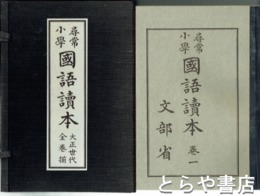 尋常
小學
國語讀本
大正世代
全巻揃
尋常
小學
國語讀本
巻一
文部省
とらや書店